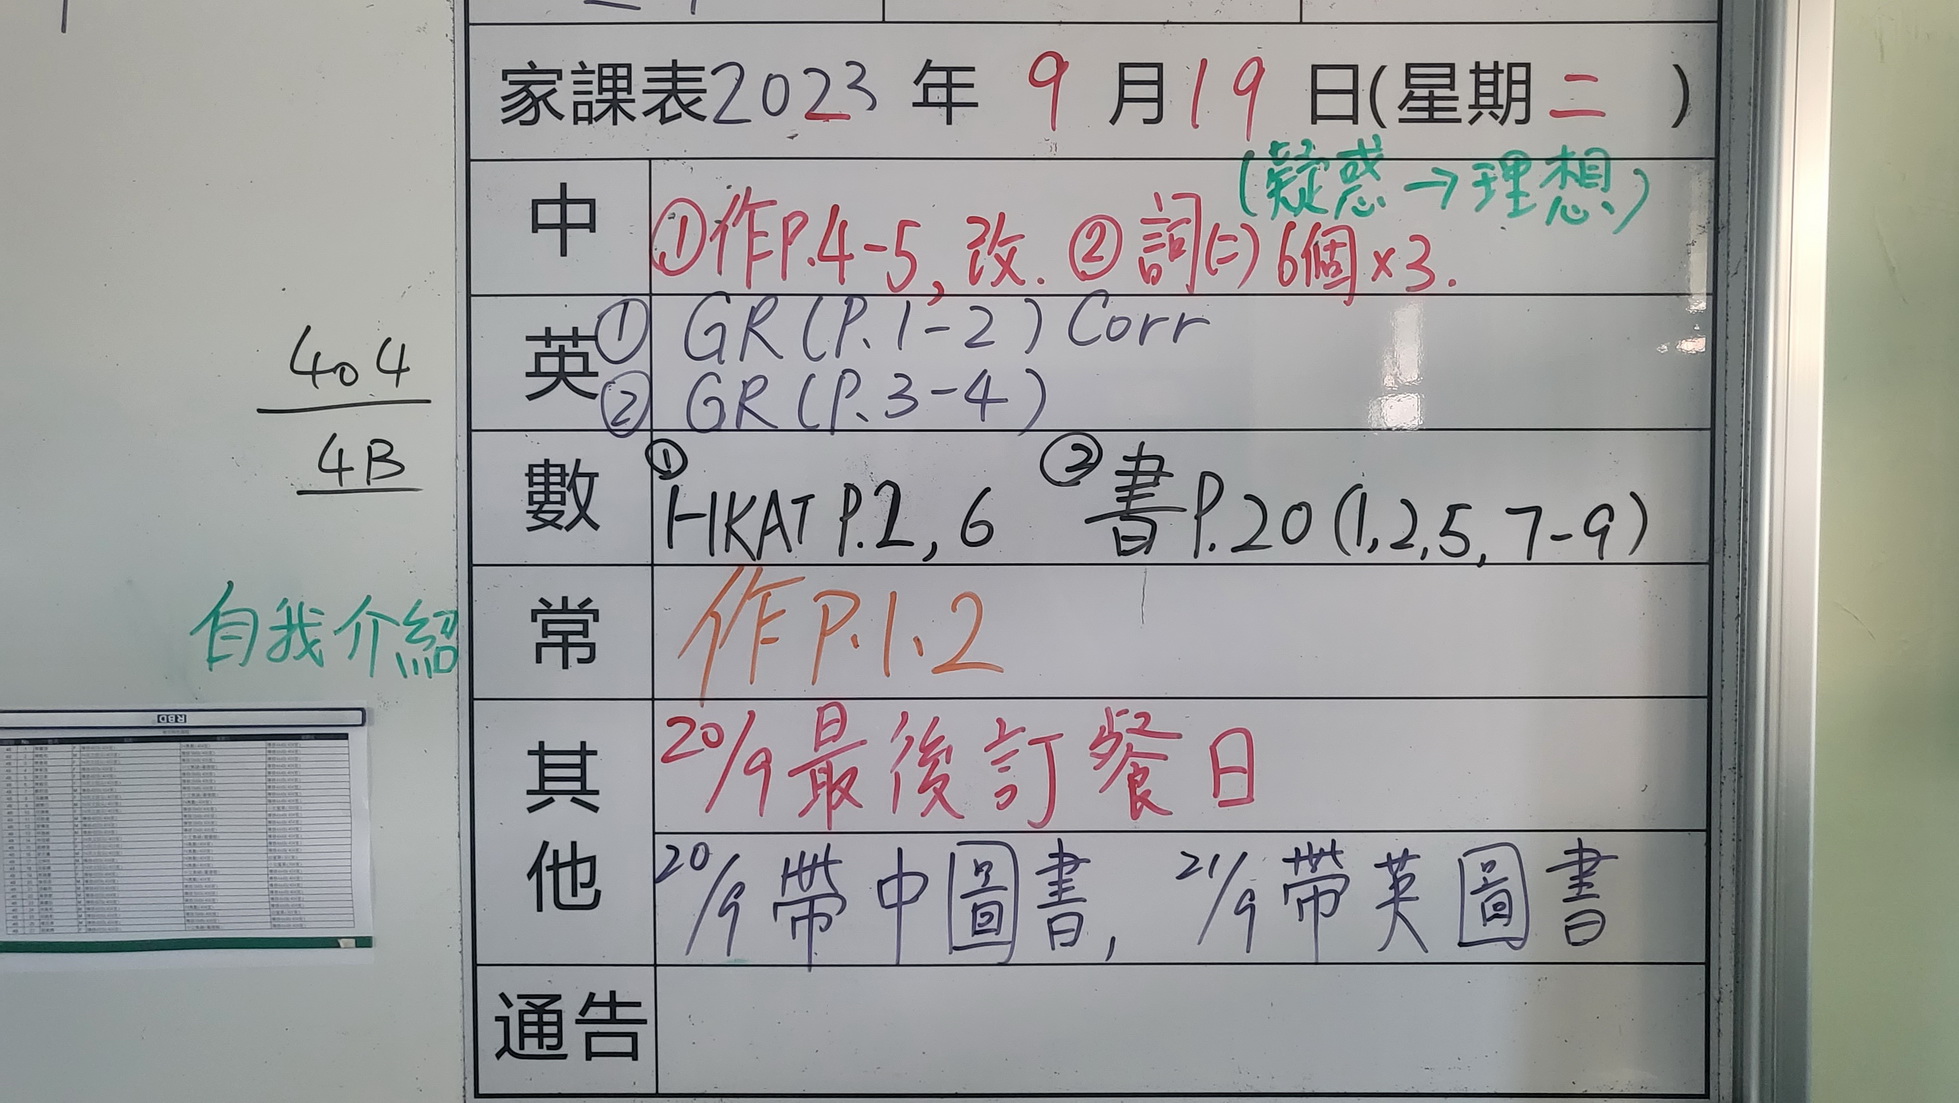 家課表2023年9月19日(星期二)
(疑惑→理想)
中 ①作P.4-5,改. ②詞(二)6個×3.
英 ① GR(P.1-2)Corr
② GR(P.3-4)
404
4B
數 ①HKAT P.2,6 ②書P.20(1,2,5,7-9)
常 作P.1、2
自我介紹
其他 20/9最後訂餐日
20/9帶中圖書, 21/9帶英圖書
通告
RBD